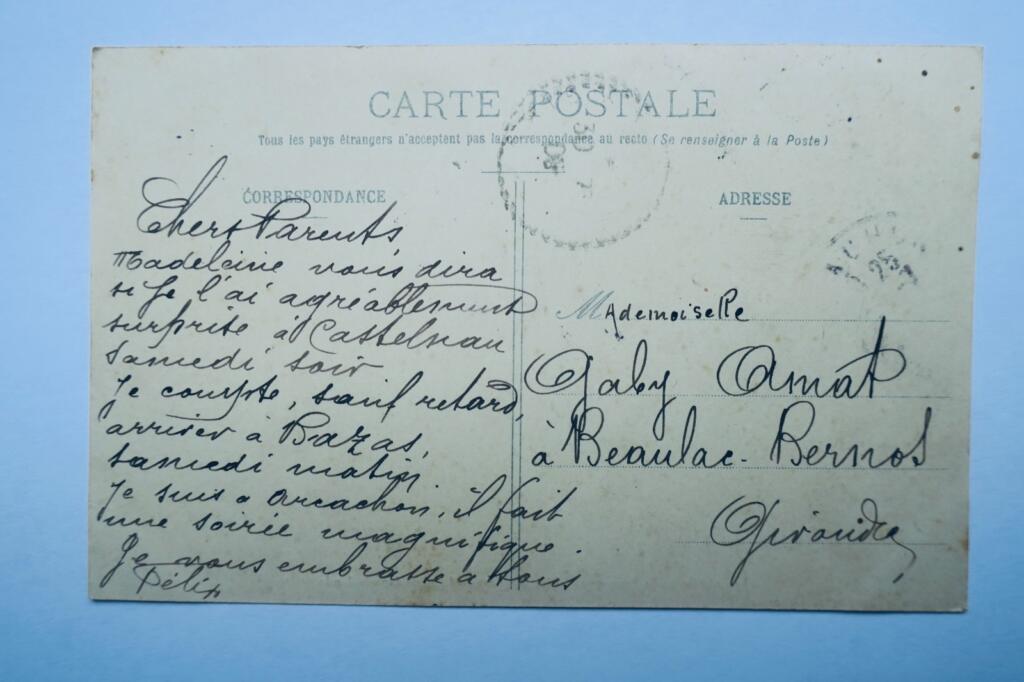 CARTE POSTALE
Tous les pays étrangers n'acceptent pas la correspondance au recto (Se renseigner à la Poste)
CORRESPONDANCE
Chers Parents
Madeleine vous dira
si je l'ai agréablement
surprise à Castelnau
samedi soir
Je compte, sauf retard,
arriver à Bazas,
samedi matin
Je suis a Arcachon, il fait
une soirée magnifique.
Je vous embrasse a tous
Félix
ADRESSE
MAdemoiselle
Gaby Amat
à Beaulac-Bernos
Gironde
30
25